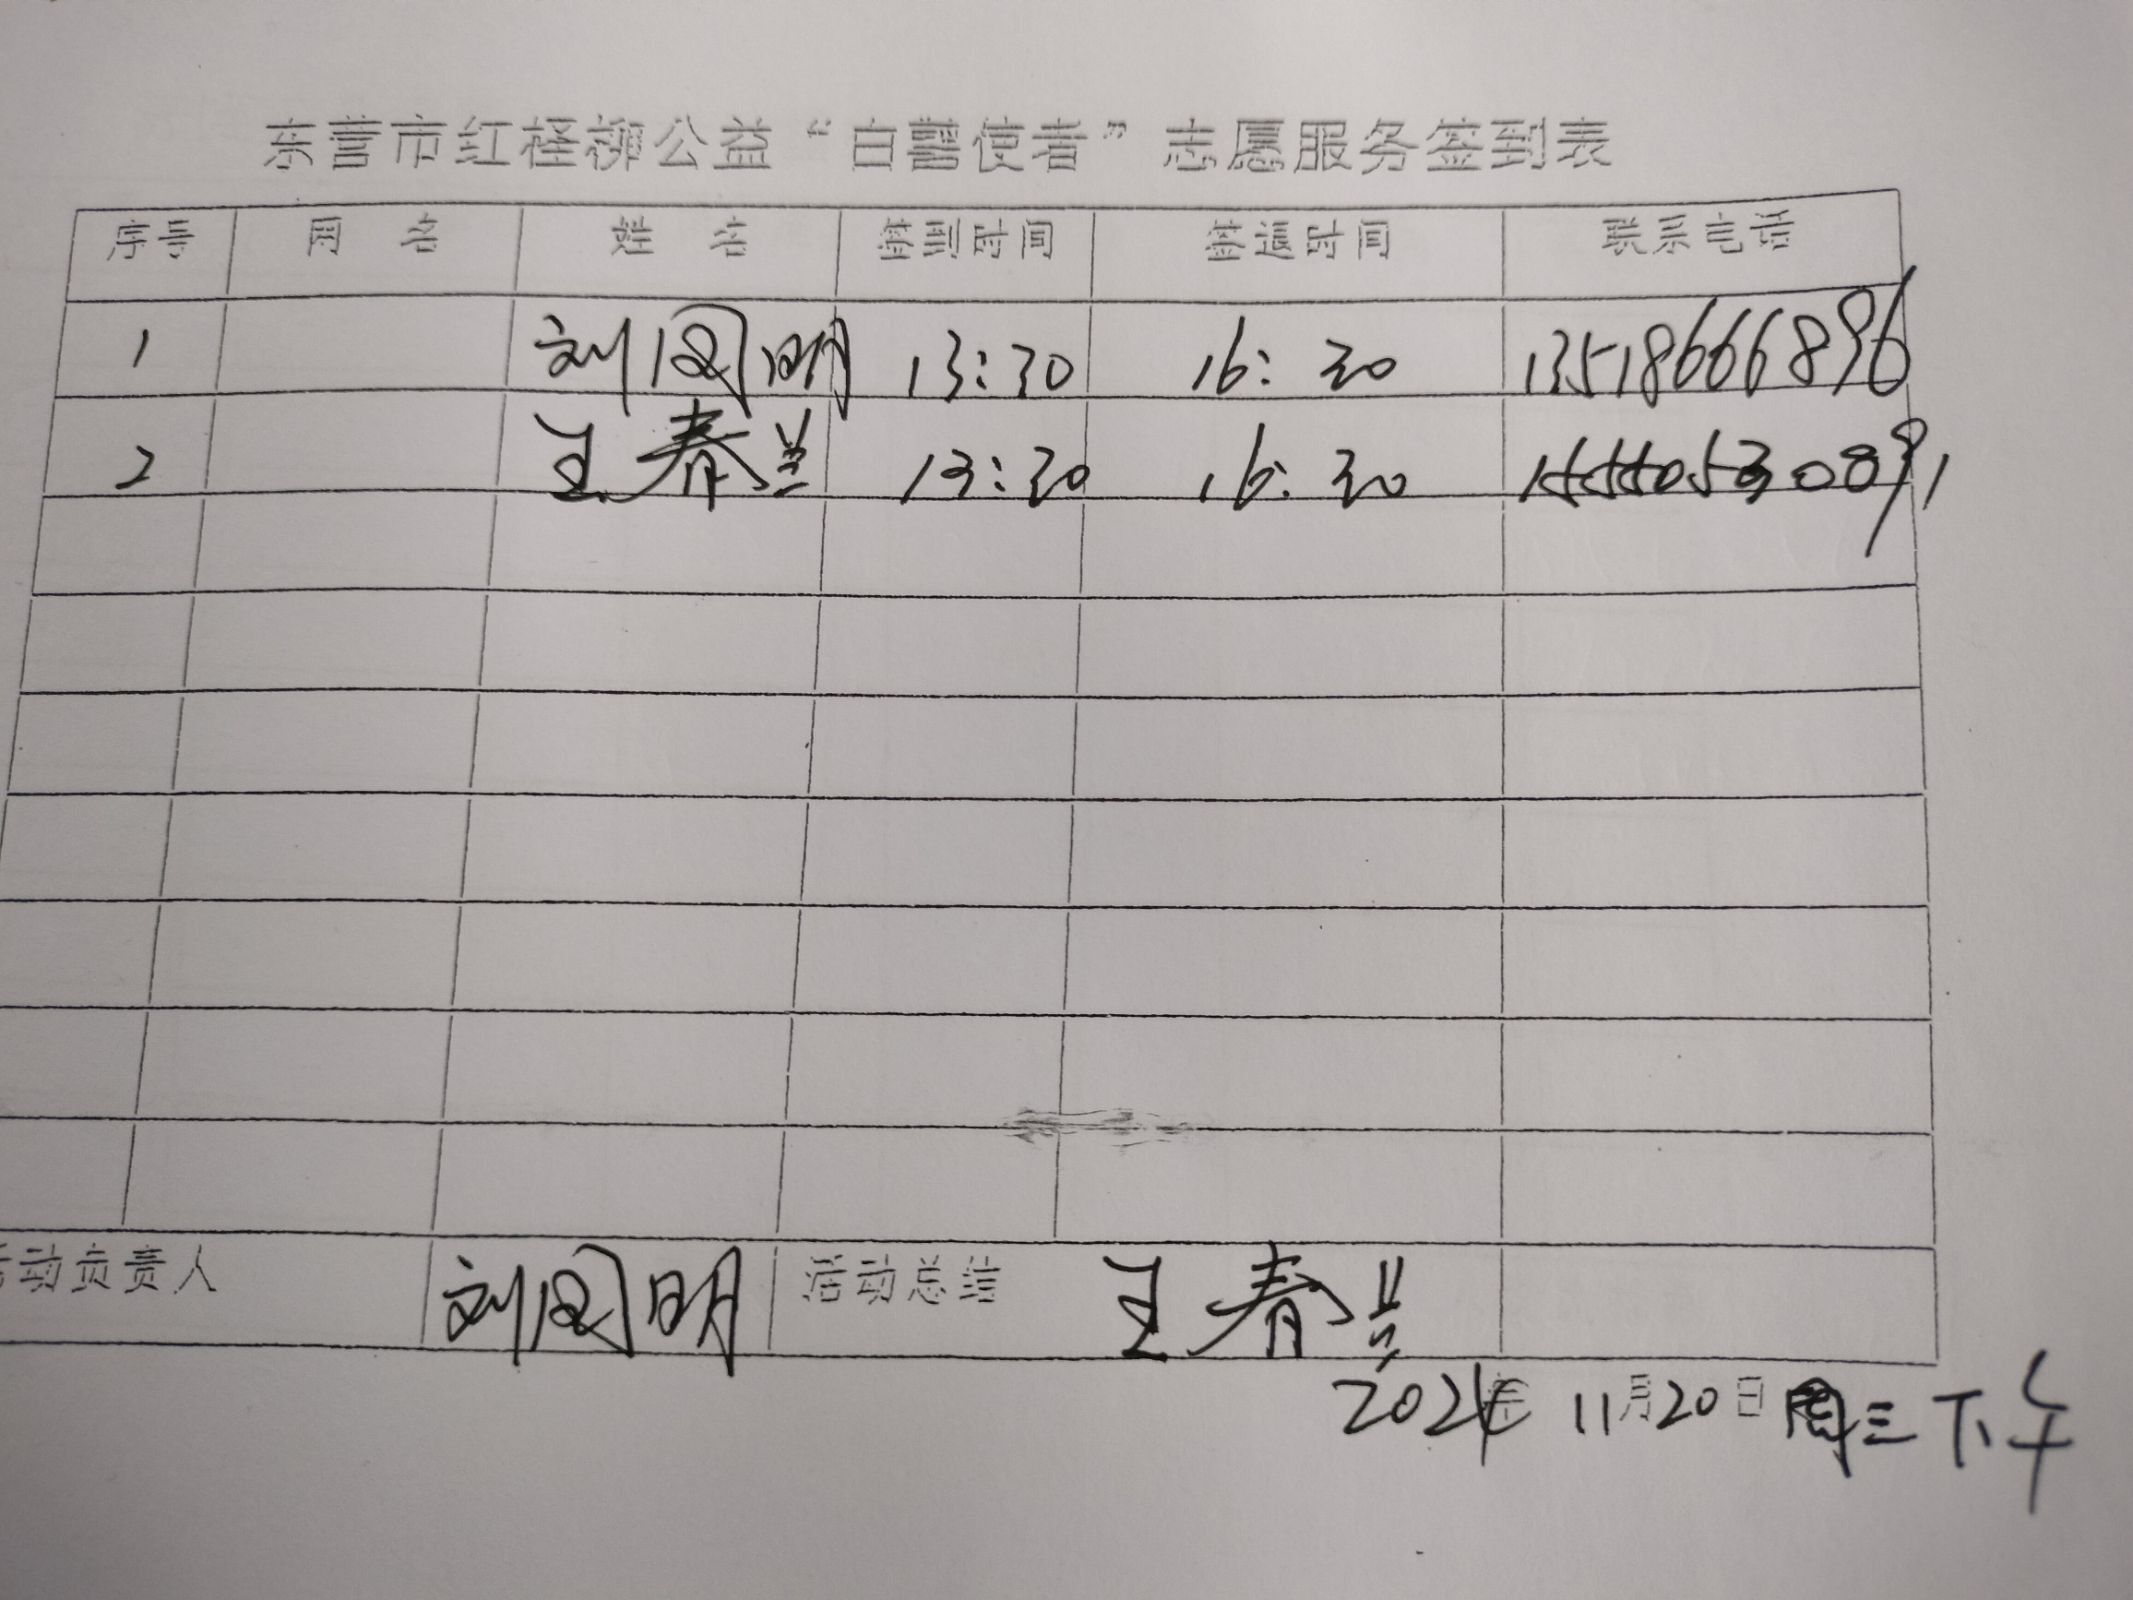 东营市红柽柳公益“白鹭使者”志愿服务签到表
序号 网 名 姓 名 签到时间 签退时间 联系电话
1 刘国明 13:30 16:30 13518666896
2 王春兰 13:30 16:30 15550530891
活动负责人 刘国明 活动总结 王春兰
2024年 11月20日 周三下午